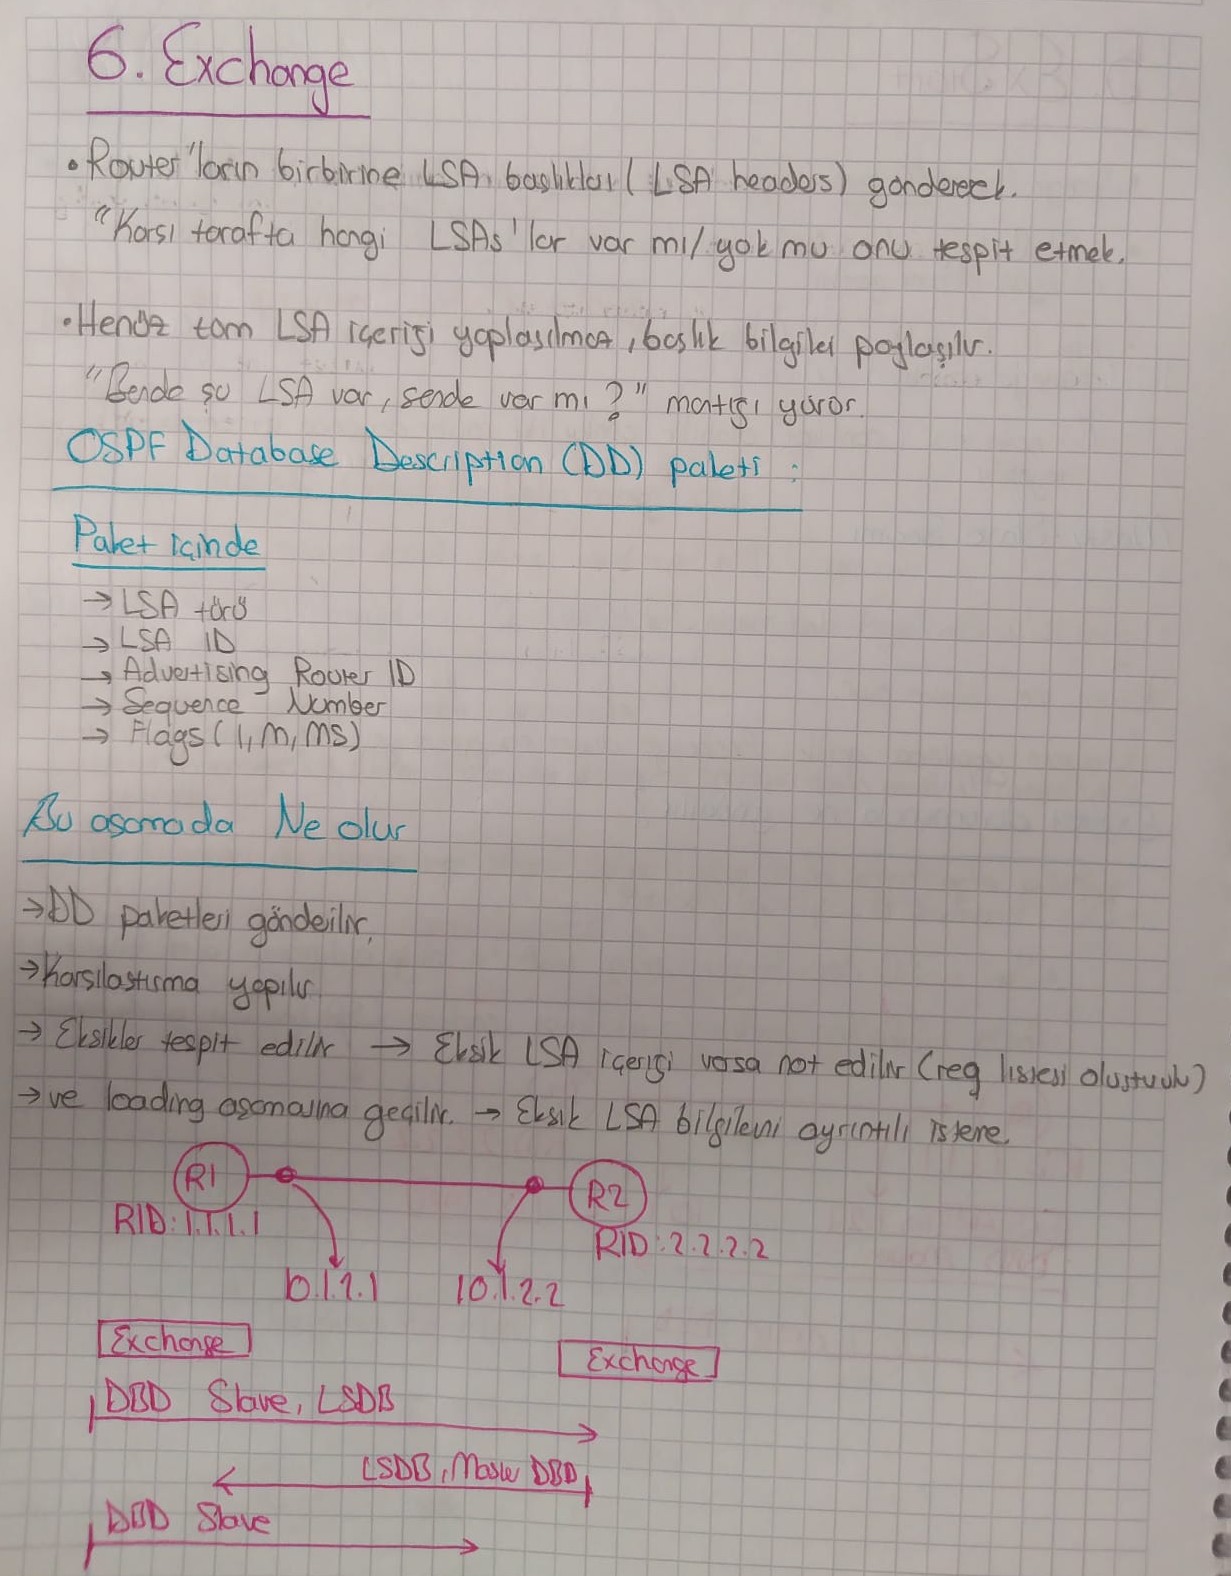 6. Exchange
• Router'ların birbirine LSA başlıkları (LSA headers) göndererek.
"Karsı tarafta hangi LSAs'lar var mı/yok mu onu tespit etmek.
• Henüz tam LSA içeriği yaplasılmaz, baslık bilgileri paylaşılır.
"Bende şu LSA var, sende var mı?" mantığı yürür.
OSPF Database Description (DD) paketi :
Paket içinde
→ LSA türü
→ LSA ID
→ Advertising Router ID
→ Sequence Number
→ Flags (I, M, MS)
Bu asamada Ne olur
→ DD paketleri gönderilir,
→ Karsılastırma yapılır
→ Eksikler tespit edilir → Eksik LSA içerigi varsa not edilir (req listesi olusturulur)
→ ve loading asamasına geçilir. → Eksik LSA bilgilerini ayrıntılı istene.
R1 R2
RID: 1.1.1.1
RID: 2.2.2.2
10.1.2.1 10.1.2.2
Exchange
Exchange
DBD Slave, LSDB
LSDB, Master DBD
DBD Slave